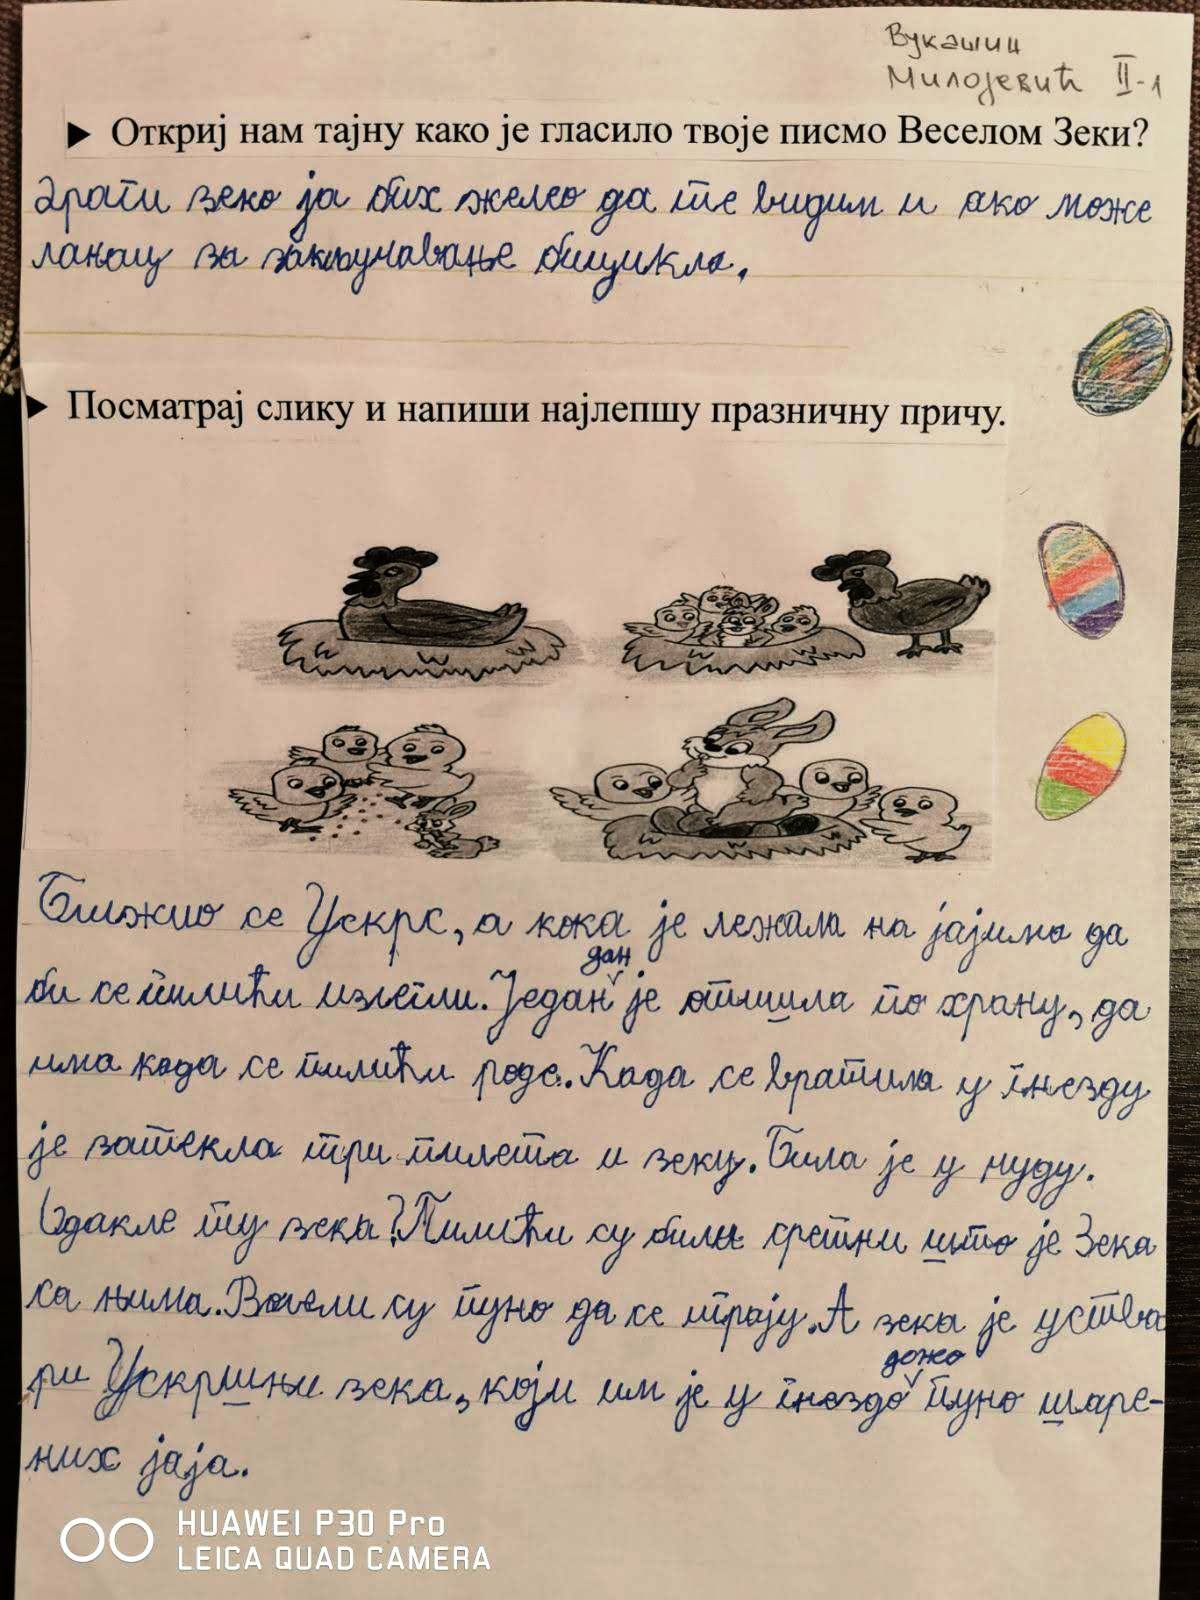 Вукашин
Милојевић II-1
▶ Откриј нам тајну како је гласило твоје писмо Веселом Зеки?
Драги зеко ја бих желео да те видим и ако може
ланац за закључавање бицикла.
▶ Посматрај слику и напиши најлепшу празничну причу.
Ближио се Ускрс, а кока је лежала на јајима да
би се пилићи излегли. Један дан је отишла по храну, да
има када се пилићи роде. Када се вратила у гнезду
је затекла три пилета и зеку. Била је у чуду.
Одакле ту зека? Пилићи су били сретни што је Зека
са њима. Волели су пуно да се играју. А зека је уства
ри Ускршњи зека, који им је у гнездо доно пуно шаре-
них јаја.
HUAWEI P30 Pro
LEICA QUAD CAMERA